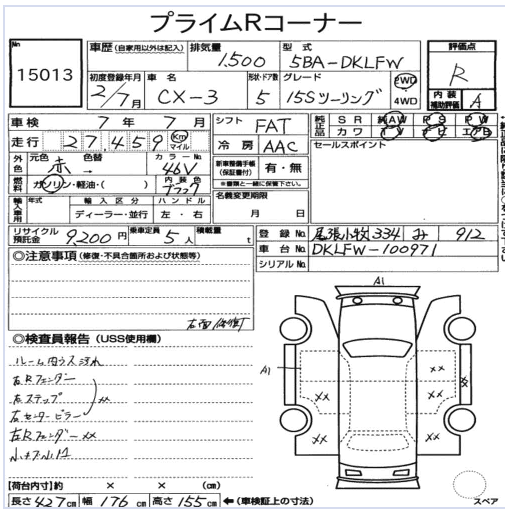 プライムRコーナー
No
15013
車歴 (自家用以外は記入)
排気量
1.500
型式
5BA-DKLFW
評価点
R
初度登録年月
2/7月
車名
CX-3
形状・ドア数
5
グレード
15Sツーリング
2WD
4WD
内装
補助評価
A
車検 7年 7月
シフト FAT
純正品 SR AAW PS PW
カワ TV ナビ エアB
走行 27.459 Km マイル
冷房 AAC
セールスポイント
外色 元色 赤 色替 → カラーNo. 46V
新車整備手帳
(保証書付)
有・無
※書類と一緒に保管下さい。
燃料 ガソリン・軽油・( )
内装色 ブラック
名義変更期限
月 日
輸入車用 年式 輸入区分 ハンドル
ディーラー・並行 左・右
リサイクル預託金 9,200円
乗車定員 5人
積載量 t
登録No. 尾張小牧 334 み 912
車台No. DKLFW-100971
シリアルNo.
◎注意事項 (修復・不具合箇所および状態等)
◎検査員報告 (USS使用欄)
ルーム内うス汚れ
右Rフェンダー
右ステップ
右センターピラー
xx
左Rフェンダー xx
A1
A1
xx
xx
xx
xx
xx
【荷台内寸】約 × × (cm)
長さ427cm 幅176cm 高さ155cm ←(車検証上の寸法)
スペア